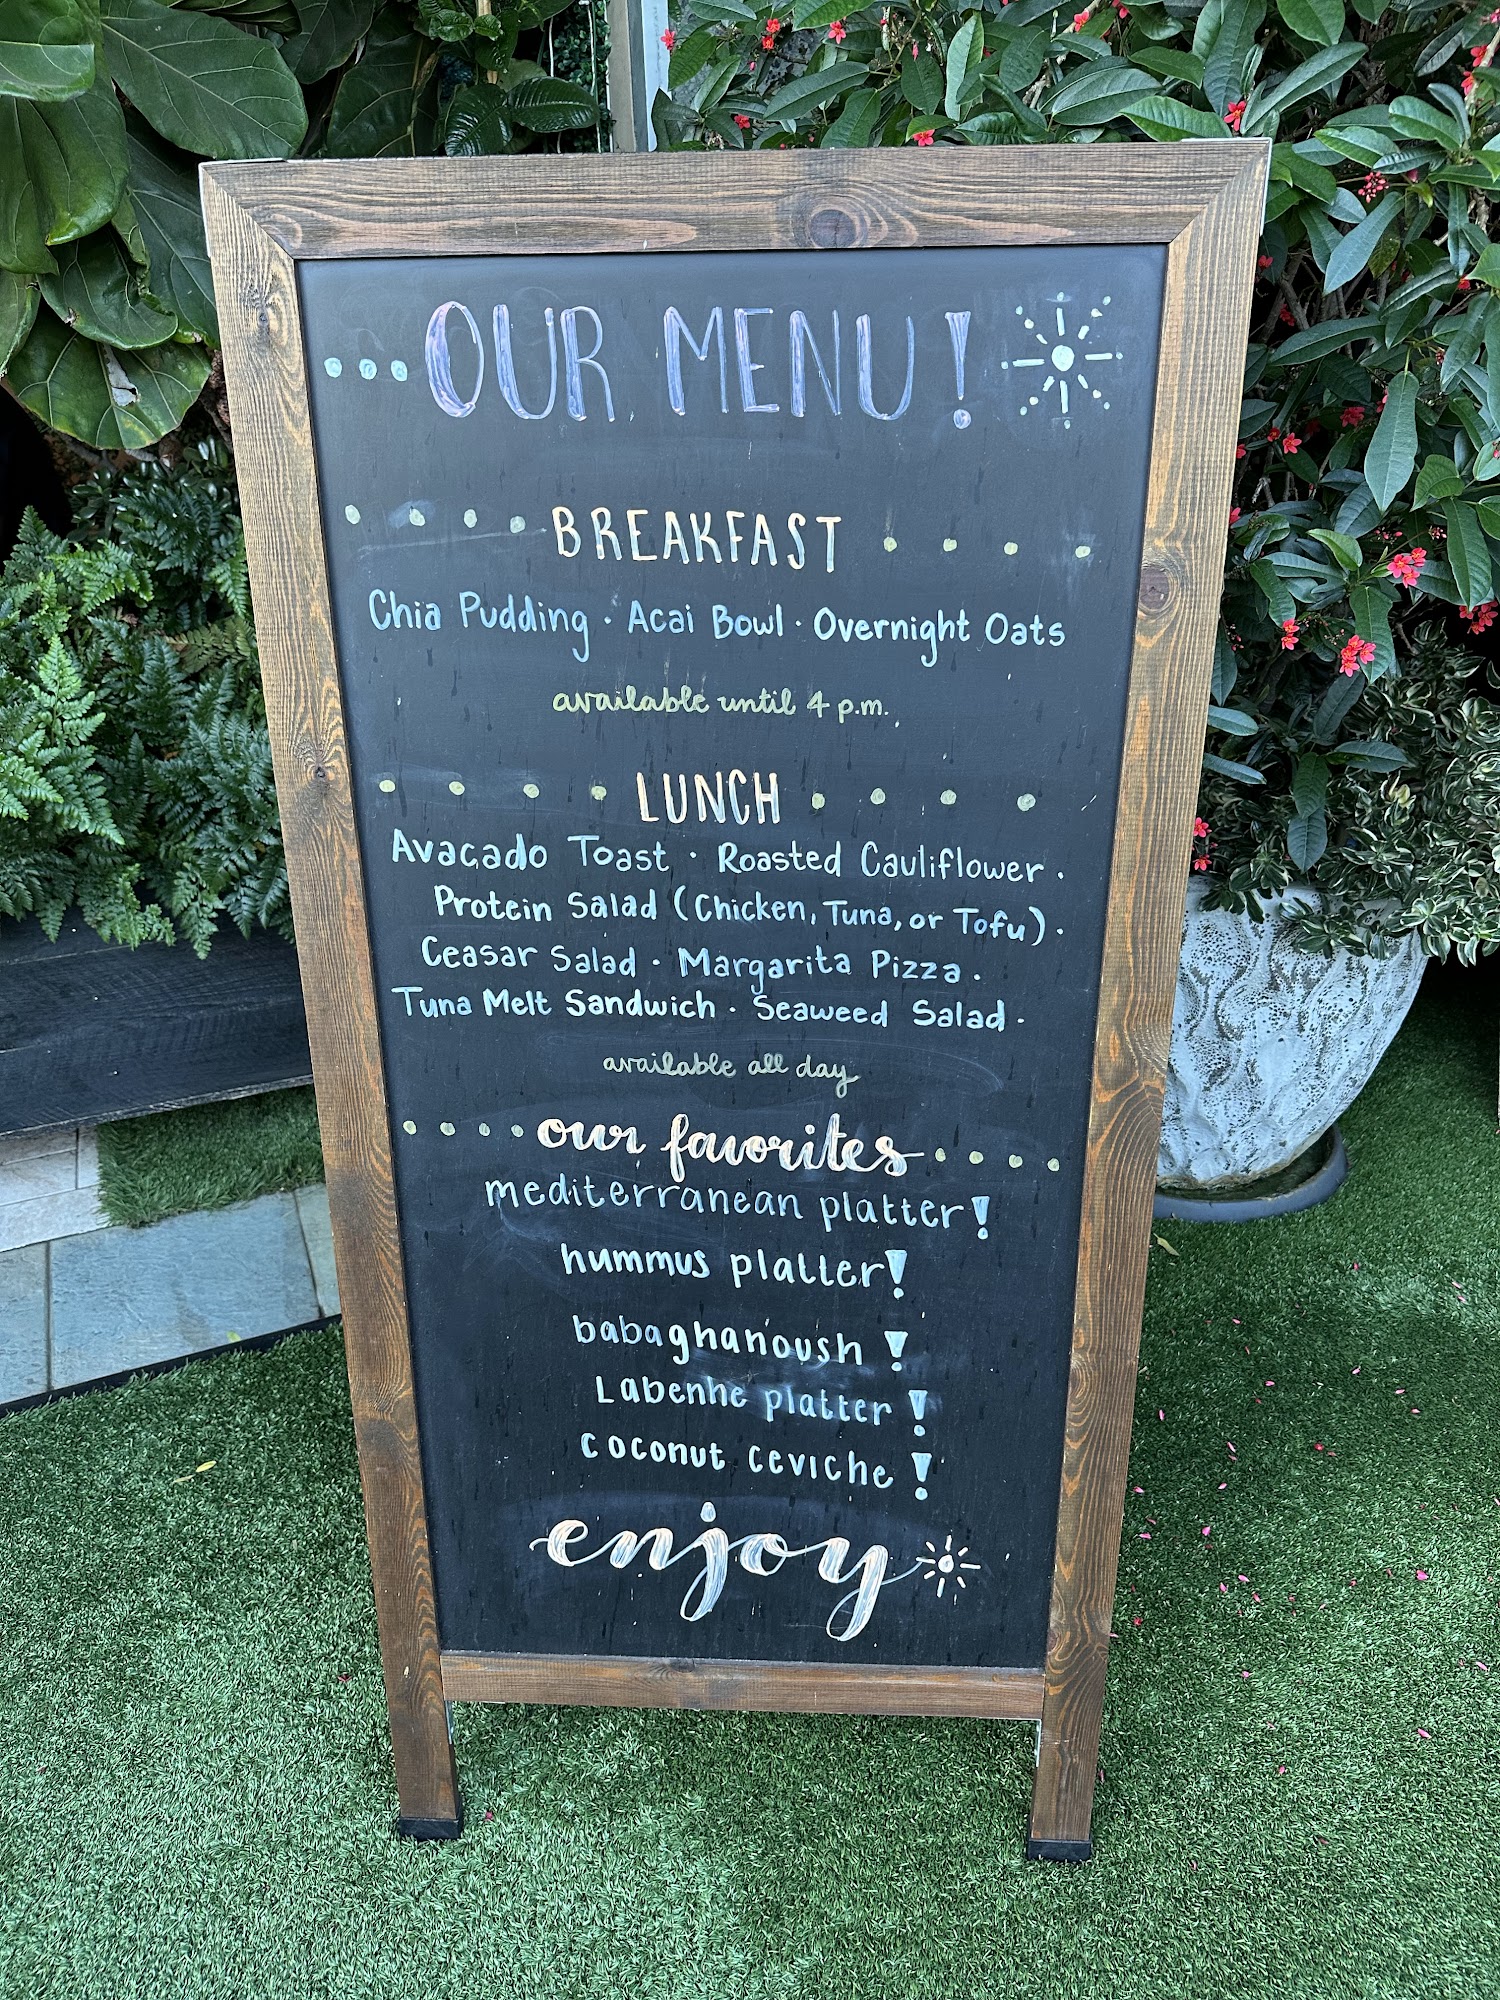 OUR MENU!
BREAKFAST
Chia Pudding · Acai Bowl · Overnight Oats
available until 4 p.m.
LUNCH
Avacado Toast · Roasted Cauliflower ·
Protein Salad (Chicken, Tuna, or Tofu) ·
Ceasar Salad · Margarita Pizza ·
Tuna Melt Sandwich · Seaweed Salad ·
available all day
our favorites
mediterranean platter!
hummus platter!
babaghanoush!
Labenhe platter!
coconut ceviche!
enjoy